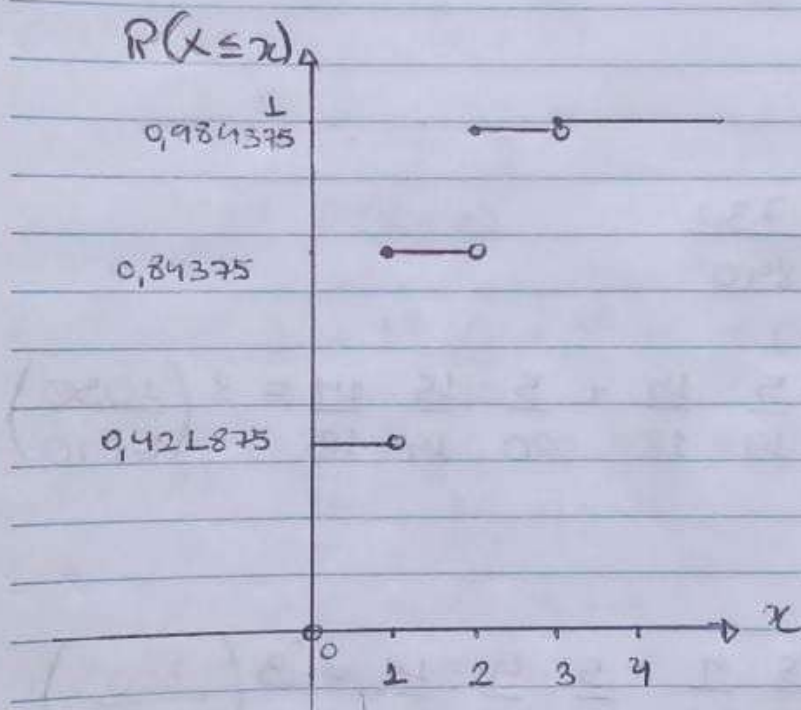 P(X≤x)
1
0,984375
0,84375
0,421875
x
0
1 2 3 4